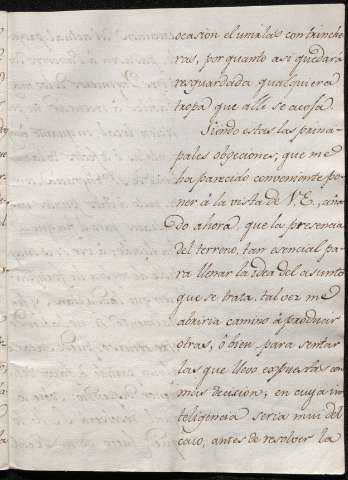 ocasion el unirlas con trinche
ras, por quanto asi quedará
resguardada qualquiera
tropa que alli se acosa.
Siendo estas las princi
pales objeciones, que me
ha parecido conveniente po
ner á la vista de V. E., aña
do ahora, que la presencia
del terreno, tan esencial pa
ra llenar la idea del asunto
que se trata, tal vez me
abriria camino á producir
otras, ó bien, para sentar
las que llevo expuestas con
mas decision; en cuya in
teligencia seria mui del
caso, antes de resolver la